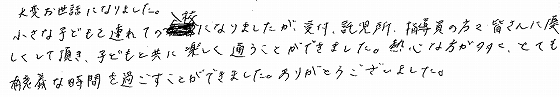 大変お世話になりました。
小さな子どもを連れての校になりましたが、受付、託児所、指導員の方々皆さんに優
しくして頂き、子どもと共に楽しく通うことができました。熱心な方が多く、とても
有意義な時間を過ごすことができました。ありがとうございました。